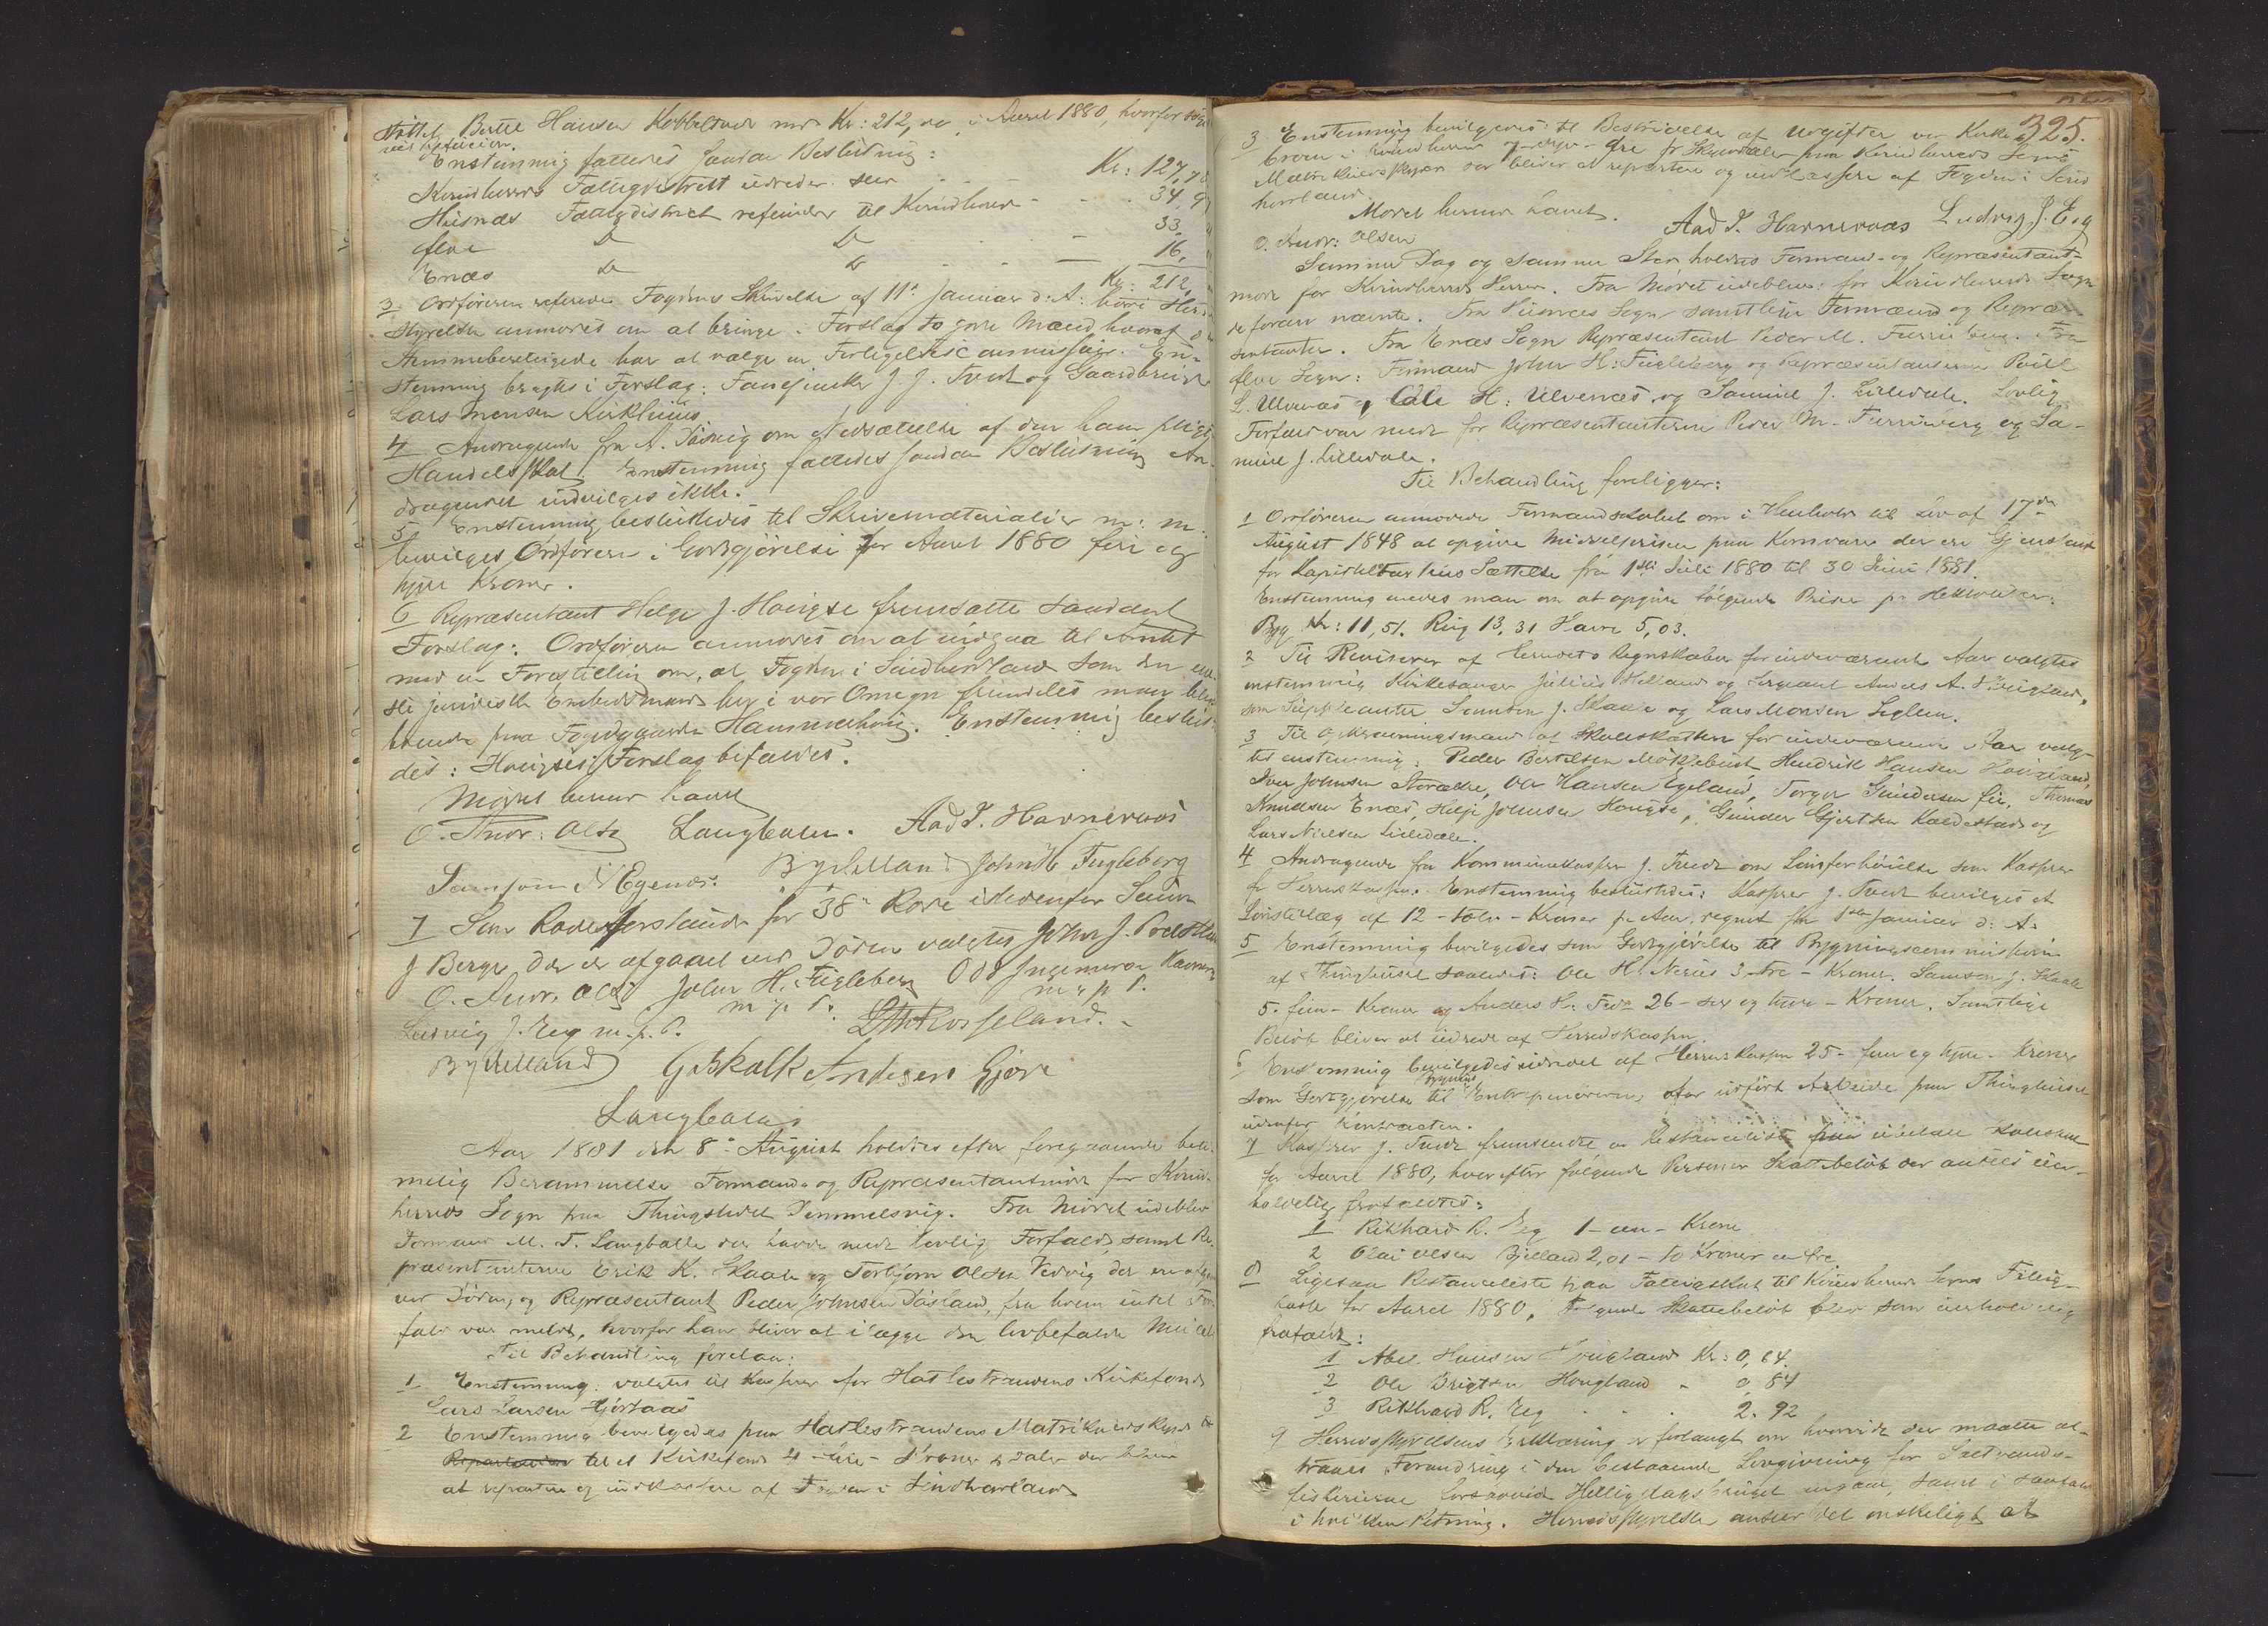 støttet Bertel Hansen Kobbeltvedt med Kr: 212, oo i Aaret 1880, hvorfor
Enstemmig fattedes saadan Beslutning:
Kvindherreds Fattigdistrikt udreder selv - - - Kr: 127,
Husnæs Fattigdistrict refunder til Kvindherred - - 34,
Ølve Do Do - 33,
Enæs Do Do - 16,
Kr: 212,
3 Ordføreren refererede Fogdens Skrivelse af 11te Januar d: A: hvori Herreds-
styrelsen anmodes om at bringe i Forslag to gode Mænd hvoraf de
Stemmeberettigede har at vælge en Forligelsescommissair. En-
stemmig bragtes i Forslag: Fanejunker J. J. Tvedt og Gaardbruger
Lars Monsen Kirkhuus
4 Andragende fra A. Døsvig om Nedsættelse af den ham pligtige
Handelsskat. Enstemmig fattedes saadan Beslutning An-
dragendet indvilges ikke.
5 Enstemmig besluttedes til Skrivematerialier m: m.
bevilges Ordføreren i Godtgjørelse for Aaret 1880 fem og
tyve Kroner.
6 Repræsentant Helge J. Haugse fremsatte saadant
Forslag: Ordføreren anmodes om at indgaa til Amtet
med en Forestilling om, at Fogden i Søndhordland som den ene-
ste juridiske Embedsmand her i vor Omegn fremdeles maa blive
boende paa Fogedgaarden Hammerhoug. Enstemmig beslut-
des: Haugses Forslag bifaldes.
Mødet herved hævet
O. Andr: Olsen Langballe. Aad T. Havnevaas
Samson N Egenæs. B Hylland John H Fugleberg
7 Som Rodeforstander for 38te Rode istedenfor Simon
J Berge der er afgaaet ved Døden valgtes John J.
O. Andr. Olsen John H. Fugleberg Odd Ingemunsen
m p P. m. p P.
Ludvig J. Eeg m. p. P. Rosseland.
B Hylland G. Skalk Andersen Gjøre
Langballe
Aar 1881 den 8de August holdtes efter foregaaende beti-
melig Berammelse Formands- og Repræsentantmøde for Kvind-
herreds Sogn paa Thingstedet Demmelsvig. Fra Mødet udeblev
Formand M. T. Langballe der havde meldt lovlig Forfald, samt Re-
præsentanterne Erik K. Skaale og Torbjørn Olsen Vedvig der ere afgaaet
ved Døden, og Repræsentant Peder Johnsen Døsland, fra hvem intet For-
fald var meldt, hvorfor han bliver at ilægge den lovbefalede Mulct
Til Behandling forelaa:
1 Enstemmig valgtes til Kasserer for Hatlestrandens Kirkefond
Lars Larsen Hjortaas
2 Enstemmig bevilgedes paa Hatlestrandens Matrikulskyld
til et Kirkefond 4 - fire - Kroner
at repartere og indkassere af Fogden i Søndhorland
325.
3 Enstemmig bevilgedes til Bestridelse af Udgifter ved Kirke
i Kvindherred Øre pr Skylddaler paa Kvindherreds Sogns
Matrikulskyld der bliver at repartere og indkassere af Fogden i Sønd
horrland
Mødet herved hævet.
O. Andr: Olsen Aad T. Havnevaas Ludvig J. Eeg
Samme Dag og samme Sted holdtes Formand- og Repræsentant-
møde for Kvindherreds Herred. Fra Mødet udeblev: for Kvindherreds Sogn
de foran nævnte. Fra Husnæs Sogn samtlige Formænd og Repræ-
sentanter. Fra Enæs Sogn Repræsentant Peder M. Furuberg. Fra
Ølve Sogn: Formand John H: Fugleberg og Repræsentanterne Poul
L. Ulvenæs, Ole H: Ulvenæs, og Samuel J. Lilledale. Lovlig
Forfald var meldt for Repræsentanterne Peder M. Furuberg og Sa-
muel J. Lilledale.
Til Behandling foreligger:
1 Ordføreren anmodede Formandskabet om i Henhold til Lov af 17de
August 1848 at opgive Middelprisen paa Kornvarer der ere Gjenstand
for Kapitelstaxtens Sættelse fra 1ste Juli 1880 til 30 Juni 1881.
Enstemmig enedes man om at opgive følgende Priser pr Hektoliter:
Byg Kr: 11,51. Rug 13,31 Havre 5,03.
2 Til Revisorer af Herredets Regnskaber for indeværende Aar valgtes
enstemmig Kirkesanger Julius Helland og Sergeant Anders A. Haugland,
som Suppleanter Samson J. Skaale og Lars Monsen Seglem.
3 Til Opkrævningsmænd af Skoleskatten for indeværende Aar valg-
tes enstemmig: Peder Bertelsen Møklebust Hendrik Hansen Haugland,
Iver Johnsen Storække, Ole Hansen Egeland, Torger Gundersen Lie, Thomas
Knudsen Enæs, Helje Johnsen Haugse, Gunder Gjertsen Kaldestad og
Lars Nielsen Lilledale.
4 Andragende fra Kommunekasserer J. Tvedt om Lønsforhøielse som Kasserer
for Herredskassen. Enstemmig besluttedes: Kasserer J. Tvedt bevilges et
Lønstillæg af 12 - tolv - Kroner pr Aar, regnet fra 1ste Januar d: A:
5 Enstemmig bevilgedes som Godtgjørelse til Bygningscommissionen
af Thinghuset saaledes: Ole H. Neraas 3 - tre - Kroner. Samson J. Skaale
5. fem - Kroner og Anders H. Tvedt 26 - sex og tyve - Kroner. Samtlige
Beløb bliver at udrede af Herredskassen.
6 Enstemmig bevilgedes udredet af Herredskassen 25 - fem og tyve - Kroner
som Godtgjørelse til Bygnings Entrepenørerne, for udført Arbeide paa Thinghuset
udenfor Kontracten.
7 Kasserer J. Tvedt fremlagde en Restanceliste paa uerholdt Skoleskat
for Aaret 1880, hvorefter følgende Personer Skattebeløb der ansees uer-
holdelig frafaldtes:
1 Rikhard R. Eeg 1 - een - Krone
2 Olai Olsen Bjelland 2,01 - to Kroner en Øre
8 Ligesaa Restanceliste paa Fattigskat til Kvindherreds Sogns Fattig-
kasse for Aaret 1880. Følgende Skattebeløb blev som uerholdelig
frafaldt:
1 Abel Hansen Haugland Kr: 0,64.
2 Ole Brigtsen Hougland - 0,84
3 Rikhard R. Eeg - - 2.92
9 Herredsstyrelsens Erklæring er forlangt om hvorvidt der maatte at-
traaes Forandring i den bestaaende Lovgivning for Saltvands-
fiskerierne forsaavidt Helligdagsbruget angaar, samt i saafald
i hvilken Retning. Herredsstyrelsen anseer det ønskeligt at